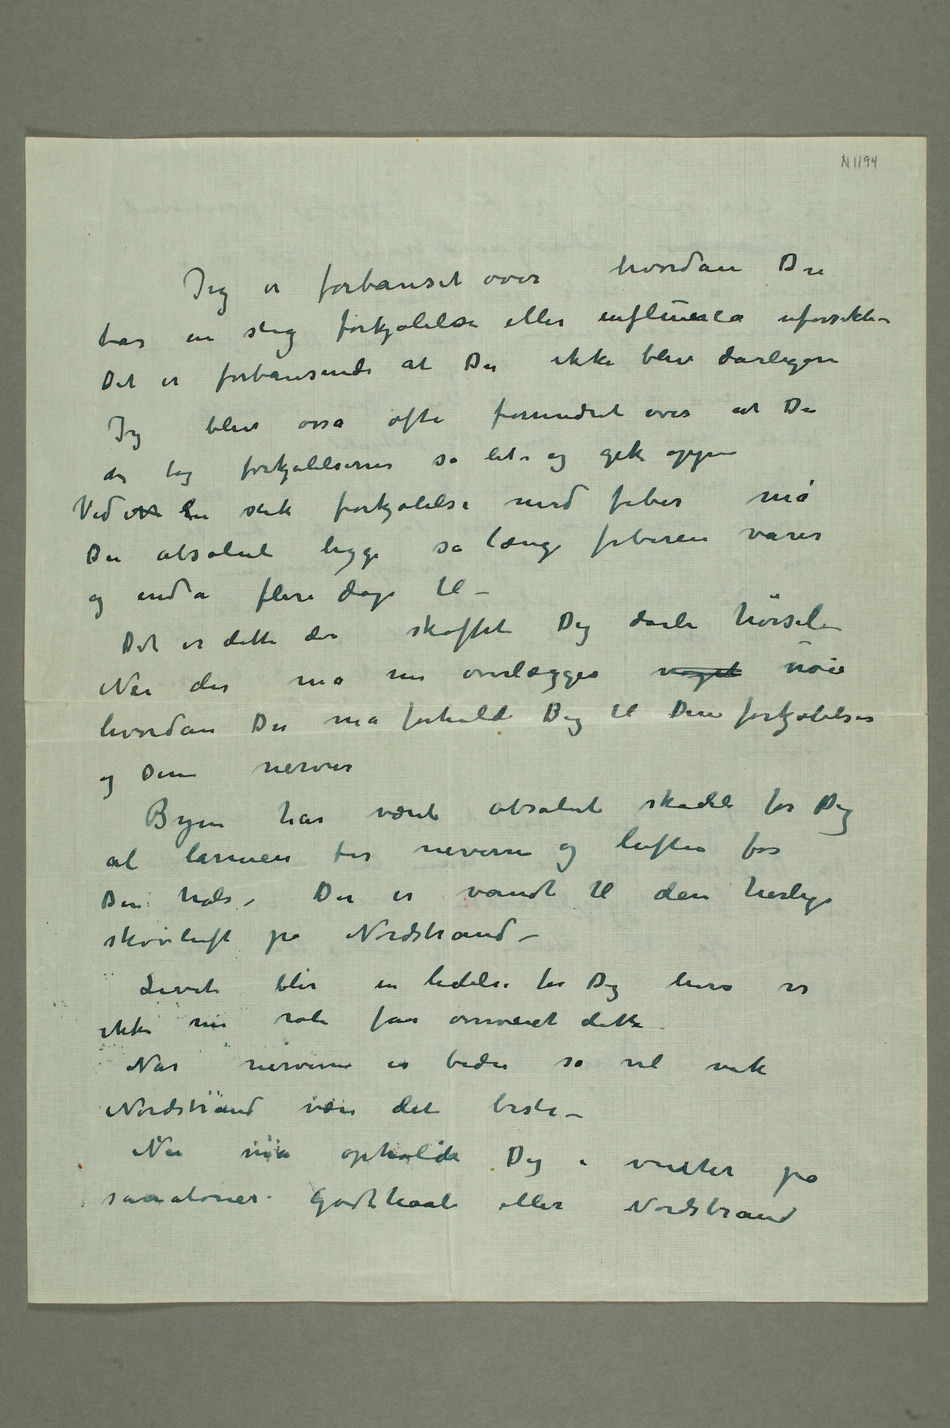 N 1194
Jeg er forbauset over hvordan Du
tar en slig forkjølelse eller influensa uforsikti–
Det er forbausende at Du ikke blev dårligere
Jeg blev osså ofte forundret over at Du
da tog forkjølelserne så let – og gik oppe
Ved en slik forkjølelse med feber må
Du absolut ligge så længe feberen varer
og enda flere dage til –
Det er dette der skaffet Dig dårli hørsel –
Nu der må nu overlægges noget nøie
hvordan Du må forholde Dig til Dine forkjølelser
og Dine nerver
Byen har været absolut skadeli for Dig
al larmen for nerverne og luften for
Din hals – Du er vandt til den herlige
skovluft på Nordstrand –
Livet blir en lidelse for Dig hvis vi
ikke nu roli får overveiet dette
Når nerverne er bedre så vil nok
Nordstrand være det beste –
Nu må opholde Dig i vinter på
sanatorier Godthaab eller Nordstrand